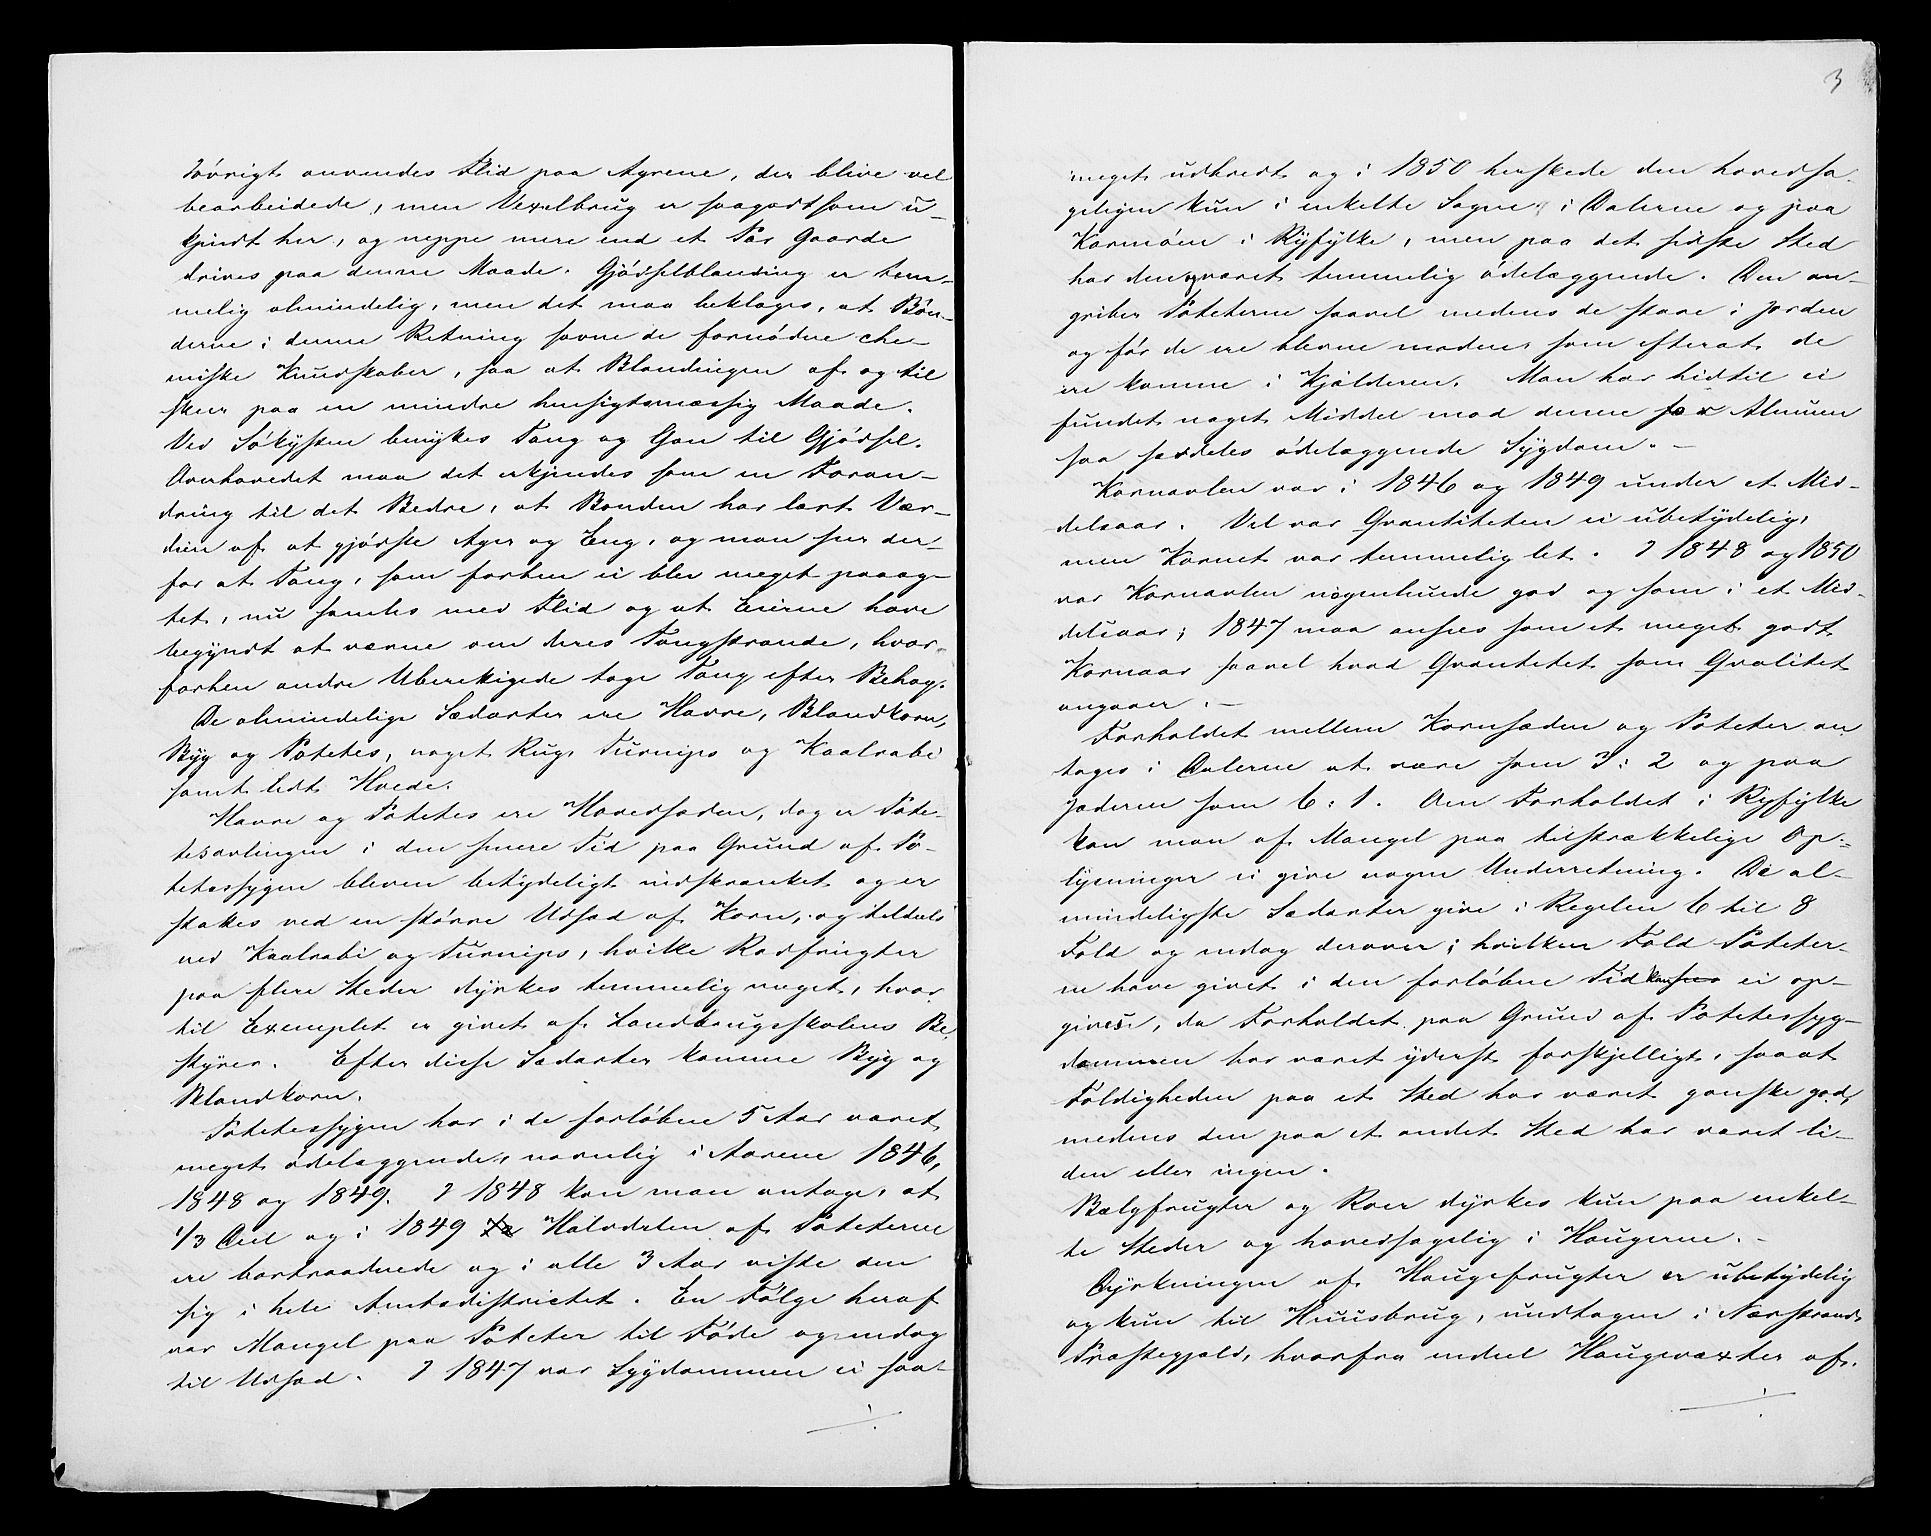 Iøvrigt anvendes Flid paa Agrene, der blive vel
bearbeidede, men Vexelbrug er saagodtsom u-
kjendt her, og neppe mere end et Par Gaarde
drives paa denne Maade. Gjødselblanding er tem-
melig almindelig, men det maa beklages, at Bøn-
derne i denne Retning savne de fornødne che-
miske Kundskaber, saa at Blandingen af og til
skeer paa en mindre hensigtsmæssig Maade.
Ved Søkysten benyttes Tang og Gan til Gjødsel.
Overhovedet maa det erkjendes som en Foran-
dring til det Bedre, at Bonden har lært Vær-
dien af at gjødske Ager og Eng, og man seer der-
for at Tang, som forhen ei blev meget paaag-
tet, nu samles med Flid og at Eierne have
begyndt at værne om deres Tangstrande, hvor
forhen andre Uberettigede toge Tang efter Behag.
De almindelige Sædarter ere Havre, Blandkorn,
Byg og Potetes, noget Rug, Turnips og Kaalrabi
samt lidt Hvede.
Havre og Potetes ere Hovedsæden, dog er Pote-
tesavlingen i den senere Tid paa Grund af Po-
tetessygen bleven betydeligt indskrænket og er-
stattes ved en større Udsæd af Korn, og tildeels
ved Kaalrabi og Turnips, hvilke Rodfrugter
paa flere Steder dyrkes temmelig meget, hvor
til Exemplet er givet af Landbrugsskolens Be-
styrer. Efter disse Sædarter komme Byg og
Blandkorn.
Potetessygen har i de forløbne 5 Aar været
meget ødelæggende, navnlig i Aarene 1846,
1848 og 1849. I 1848 kan man antage, at
1/3 Deel og i 1849 Halvdelen af Poteterne
ere bortraadnede og i alle 3 Aar viste den
sig i hele Amtsdistrictet. En Følge heraf
var Mangel paa Poteter til Føde og endog
til Udsæd. I 1847 var Sygdommen ei saa
3
meget udbredt og i 1850 herskede den hovedsa-
geligen kun i enkelte Sogne i Dalerne og paa
Karmøen i Ryfylke, men paa det sidste Sted
har den været temmelig ødelæggende. Den an-
griber Poteterne saavel medens de staae i Jorden
og før de ere blevne modne, som efterat de
ere komne i Kjælderen. Man har hidtil ei
fundet noget Middel mod denne for Almuen
saa særdeles ødelæggende Sygdom. -
Kornavlen var i 1846 og 1849 under et Mid-
delsaar. Vel var Qvantiteten ei ubetydelig,
men Kornet var temmelig let. I 1848 og 1850
var Kornavlen nogenlunde god og som i et Mid-
delsaar; 1847 maa ansees som et meget godt
Kornaar saavel hvad Qvantitet som Qvalitet
angaaer. -
Forholdet mellem Kornsæden og Poteter an
tages i Dalerne at være som 3: 2 og paa
Jæderen som 6: 1. Om Forholdet i Ryfylke
kan man af Mangel paa tilstrækkelige Op-
lysninger ei give nogen Underretning. De al-
mindeligste Sædarter give i Regelen 6 til 8
Fold og endog derover; hvilken Fold Poteter-
ne have givet i den forløbne Tid kan ei op-
gives, da Forholdet paa Grund af Potetessyg-
dommen har været yderst forskjelligt, saaat
Foldigheden paa et Sted har været ganske god,
medens den paa et andet Sted har været li-
den eller ingen.
Bælgfrugter og Roer dyrkes kun paa enkel-
te Steder og hovedsagelig i Haugerne. -
Dyrkningen af Haugefrugter er ubetydelig
og kun til Huusbrug, undtagen i Nærstrands
Præstegjæld, hvorfra endeel Haugevæxter af-